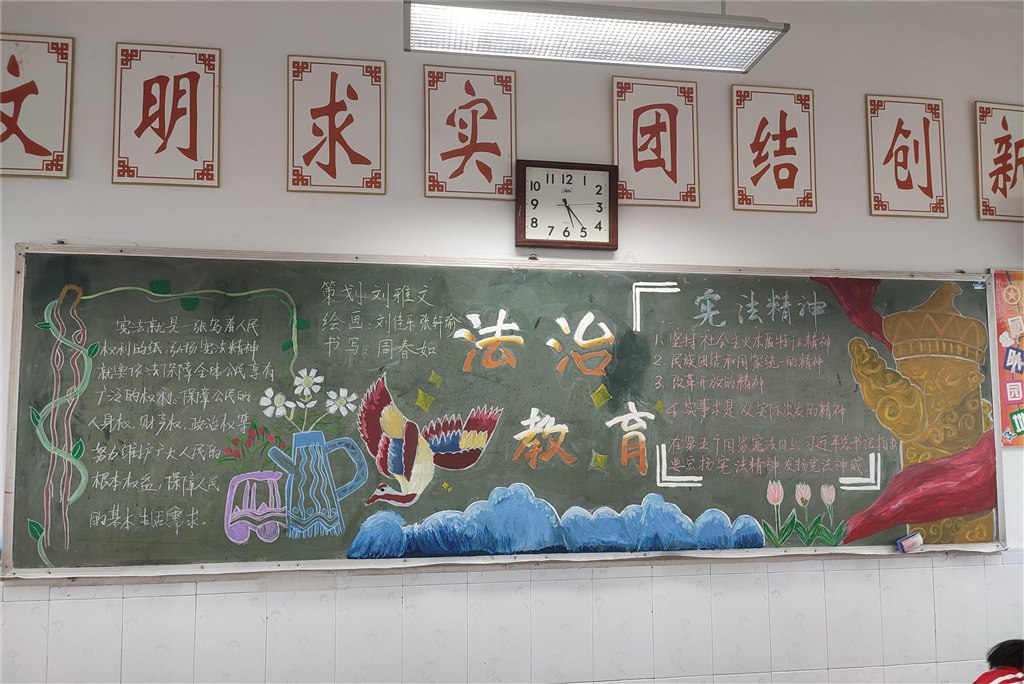 文 明 求 实 团 结 创 新
11 12 1
10 2
9 3
8 4
7 6 5
策划:刘雅文
绘画:刘佳乐 张轩瑜
书写:周春如
宪法就是一张写着人民
权利的纸,弘扬宪法精神
就要依法保障全体公民享有
广泛的权利、保障公民的
人身权、财产权、政治权等
努力维护广大人民的
根本权益,保障人民
的基本生活需求。
法治
教育
宪法精神
1. 坚持社会主义本质特征精神
2. 民族团结和国家统一的精神
3. 改革开放的精神
4. 实事求是从实际出发的精神
在第五个国家宪法日上习近平总书记指出
要弘扬宪法精神发扬宪法神威
园